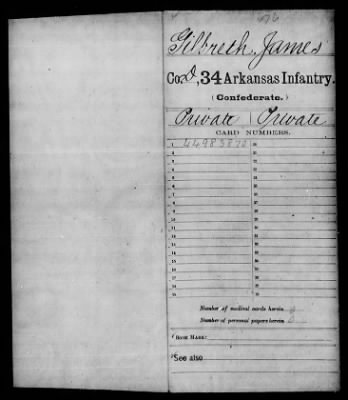 Gilbreth, James
Co. D, 34 Arkansas Infantry.
(Confederate.)
Private | Private
CARD NUMBERS.
1 44983870
2
3
4
5
6
7
8
9
10
11
12
13
14
15
16
Number of medical cards herein 0
Number of personal papers herein 0
BOOK MARK:
See also